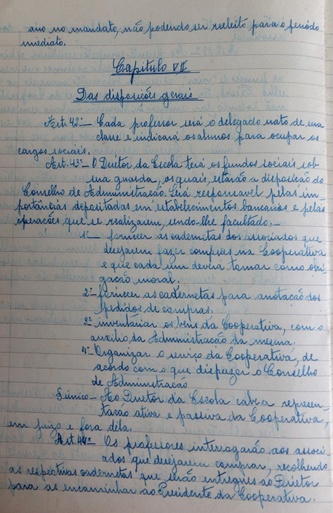 ano no mandato, não podendo ser reeleito para o periodo
imediato.
Capitulo VII
Das disposições gerais
Art. 42º — Cada professor será o delegado nato de sua
classe e indicará os alunos para ocupar os
cargos sociais.
Art. 43º — O Diretor da Escola terá os fundos sociais sob
sua guarda, os quais, estarão a disposição do
Conselho de Administração. Será responsavel pelas im-
portâncias depositadas em estabelecimentos bancarios e pelas
operações que se realizarem, sendo-lhe facultado: —
1º — fornecer as cadernetas dos associados que
desejarem fazer compras na Cooperativa
e que cada um devera tomar como obri
gação moral.
2º — fornecer as cadernetas para anotação dos
pedidos de compras.
3º — inventariar os bens da Cooperativa, com o
auxilio da Administração da mesma.
4º — Organizar o serviço da Cooperativa, de
acordo com o que dispozer o Conselho
de Administração
Único — Ao Diretor da Escola cabe a represen
tação ativa e passiva da Cooperativa,
em juizo e fora dela.
Art. 44º — Os professores interrogarão aos associ
ados que desejarem comprar, recolhendo
as respectivas cadernetas que serão entregues ao Diretor
para as encaminhar ao Presidente da Cooperativa.